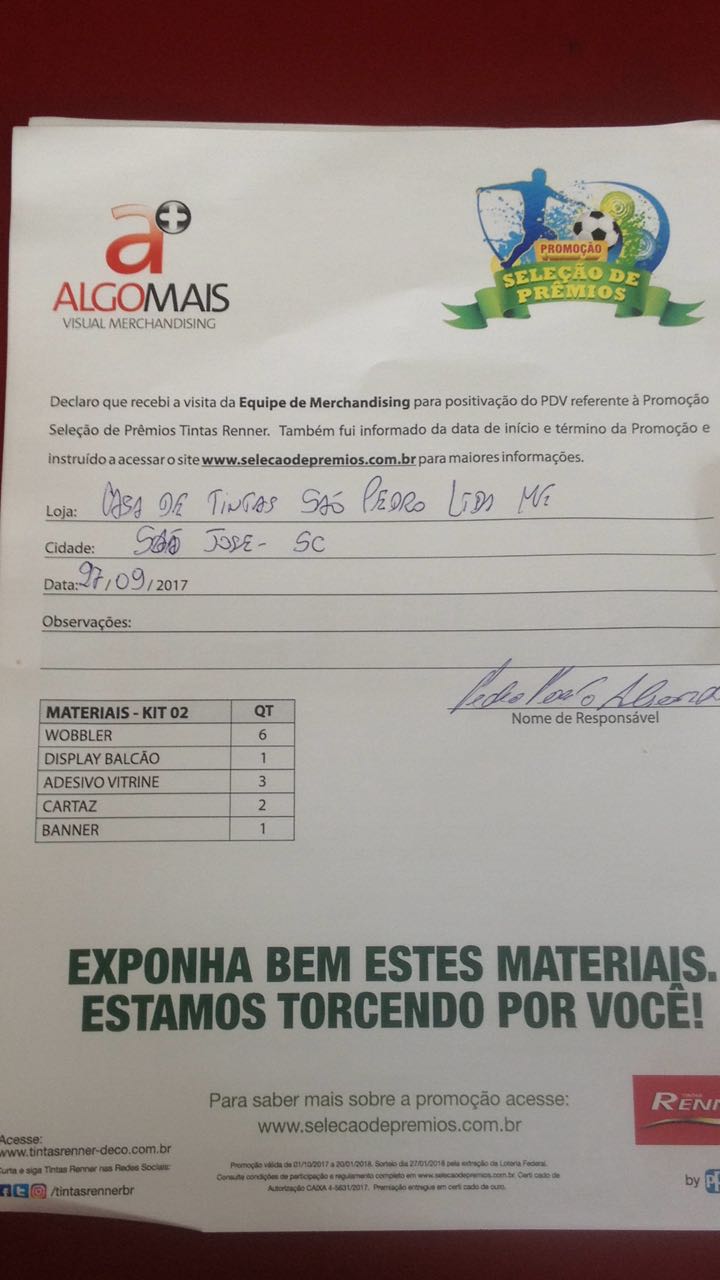 a+
ALGOMAIS
VISUAL MERCHANDISING
PROMOÇÃO
SELEÇÃO DE
PRÊMIOS
Declaro que recebi a visita da Equipe de Merchandising para positivação do PDV referente à Promoção
Seleção de Prêmios Tintas Renner. Também fui informado da data de início e término da Promoção e
instruído a acessar o site www.selecaodepremios.com.br para maiores informações.
Loja: CASA DE TINTAS SAO PEDRO LTDA ME
Cidade: SAO JOSE - SC
Data: 27/09/2017
Observações:
Pedro
Nome de Responsável
MATERIAIS - KIT 02 QT
WOBBLER 6
DISPLAY BALCÃO 1
ADESIVO VITRINE 3
CARTAZ 2
BANNER 1
EXPONHA BEM ESTES MATERIAIS.
ESTAMOS TORCENDO POR VOCÊ!
Para saber mais sobre a promoção acesse:
www.selecaodepremios.com.br
RENN
by pp
Acesse:
www.tintasrenner-deco.com.br
Curta e siga Tintas Renner nas Redes Sociais:
/tintasrennerbr
Promoção válida de 01/10/2017 a 20/01/2018. Sorteio dia 27/01/2018 pela extração da Loteria Federal.
Consulte condições de participação e regulamento completo em www.selecaodepremios.com.br. Certi cado de
Autorização CAIXA 4-5631/2017. Premiação entregue em certi cado de ouro.